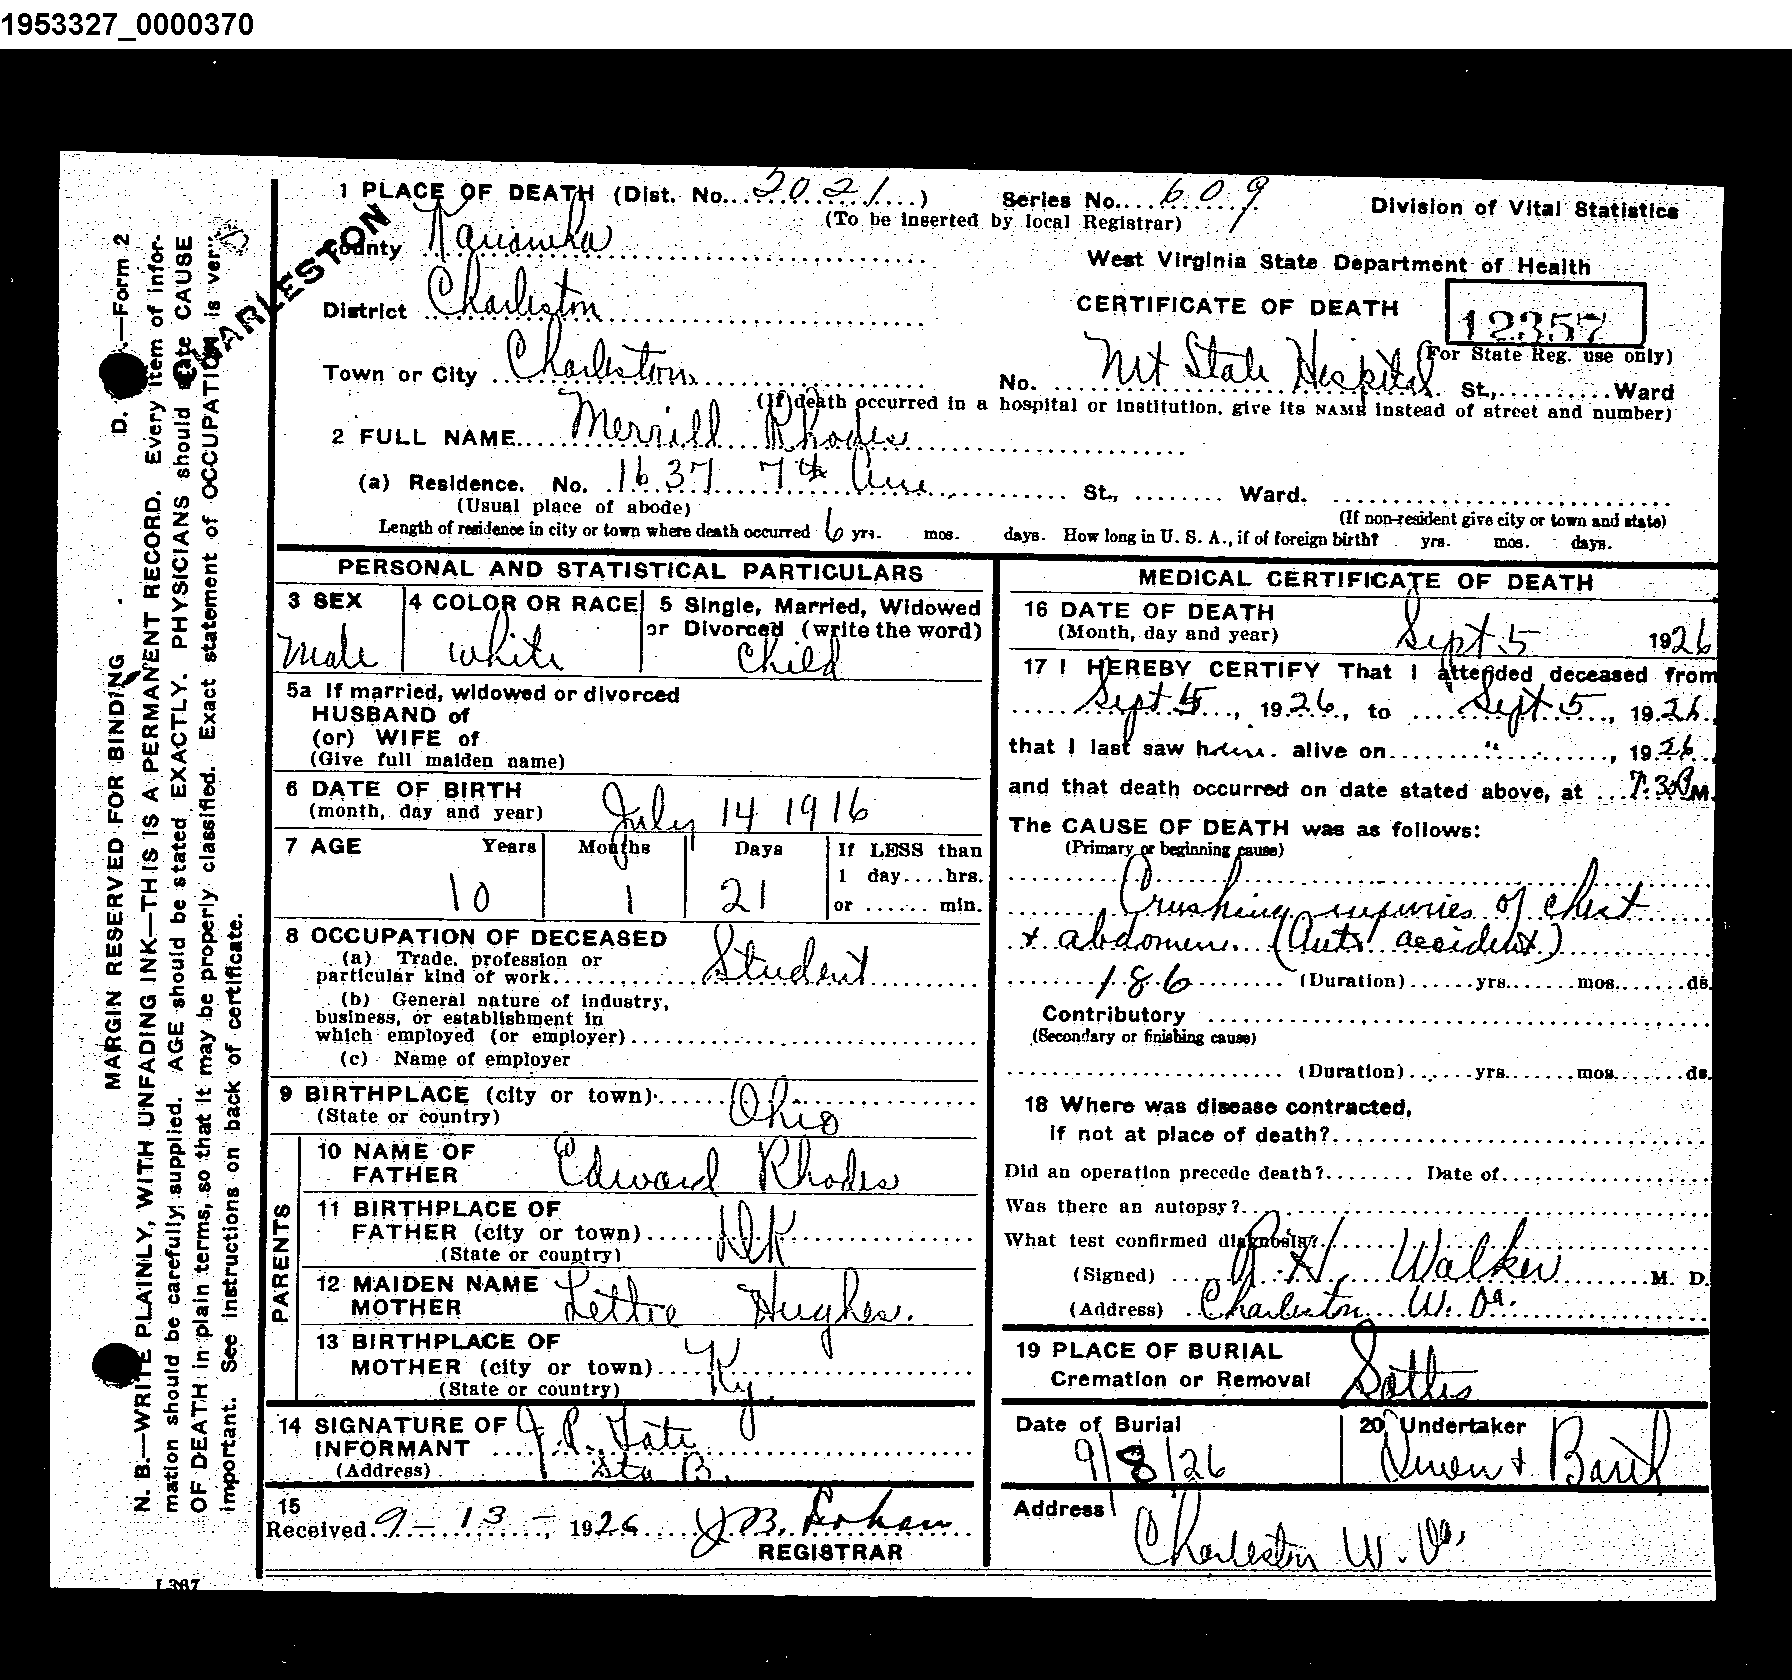 1953327_0000370
1 PLACE OF DEATH (Dist. No. 2021) Series No. 609 Division of Vital Statistics
(To be inserted by local Registrar)
CHARLESTON
County Kanawha
West Virginia State Department of Health
District Charleston
CERTIFICATE OF DEATH 12357
(For State Reg. use only)
Town or City Charleston No. Mt State Hospital St., Ward
(If death occurred in a hospital or institution, give its NAME instead of street and number)
2 FULL NAME Merrill Rhodes
(a) Residence. No. 1637 7th Ave St., Ward.
(Usual place of abode) (If non-resident give city or town and state)
Length of residence in city or town where death occurred 6 yrs. mos. days. How long in U. S. A., if of foreign birth? yrs. mos. days.
PERSONAL AND STATISTICAL PARTICULARS
3 SEX 4 COLOR OR RACE 5 Single, Married, Widowed
or Divorced (write the word)
Male white Child
5a If married, widowed or divorced
HUSBAND of
(or) WIFE of
(Give full maiden name)
6 DATE OF BIRTH
(month, day and year) July 14 1916
7 AGE Years Months Days If LESS than
1 day....hrs.
10 1 21 or ...... min.
8 OCCUPATION OF DECEASED
(a) Trade, profession or
particular kind of work Student
(b) General nature of industry,
business, or establishment in
which employed (or employer)
(c) Name of employer
9 BIRTHPLACE (city or town) Ohio
(State or country)
PARENTS
10 NAME OF
FATHER Edward Rhodes
11 BIRTHPLACE OF
FATHER (city or town) DK
(State or country)
12 MAIDEN NAME
MOTHER Lettie Hughes.
13 BIRTHPLACE OF
MOTHER (city or town) Ky.
(State or country)
14 SIGNATURE OF
INFORMANT J. P. Tate
(Address) Sta B.
15
Received 9 - 13 - 1926
REGISTRAR
MEDICAL CERTIFICATE OF DEATH
16 DATE OF DEATH
(Month, day and year) Sept. 5 1926
17 I HEREBY CERTIFY That I attended deceased from
Sept 5, 1926, to Sept 5, 1926,
that I last saw him alive on " , 1926
and that death occurred on date stated above, at 7:30 P M.
The CAUSE OF DEATH was as follows:
(Primary or beginning cause)
Crushing injuries of chest
+ abdomen. (Auto accident)
186 (Duration) yrs. mos. ds.
Contributory
(Secondary or finishing cause)
(Duration) yrs. mos. ds.
18 Where was disease contracted,
if not at place of death?
Did an operation precede death? Date of
Was there an autopsy?
What test confirmed diagnosis?
(Signed) H. Walker M. D.
(Address) Charleston W. Va.
19 PLACE OF BURIAL
Cremation or Removal Sattes
Date of Burial 20 Undertaker
9/8/26 + Barth
Address
Charleston W. Va.
MARGIN RESERVED FOR BINDING D. —Form 2
N. B.—WRITE PLAINLY, WITH UNFADING INK—THIS IS A PERMANENT RECORD. Every item of infor-
mation should be carefully supplied. AGE should be stated EXACTLY. PHYSICIANS should state CAUSE
OF DEATH in plain terms, so that it may be properly classified. Exact statement of OCCUPATION is very
important. See instructions on back of certificate.